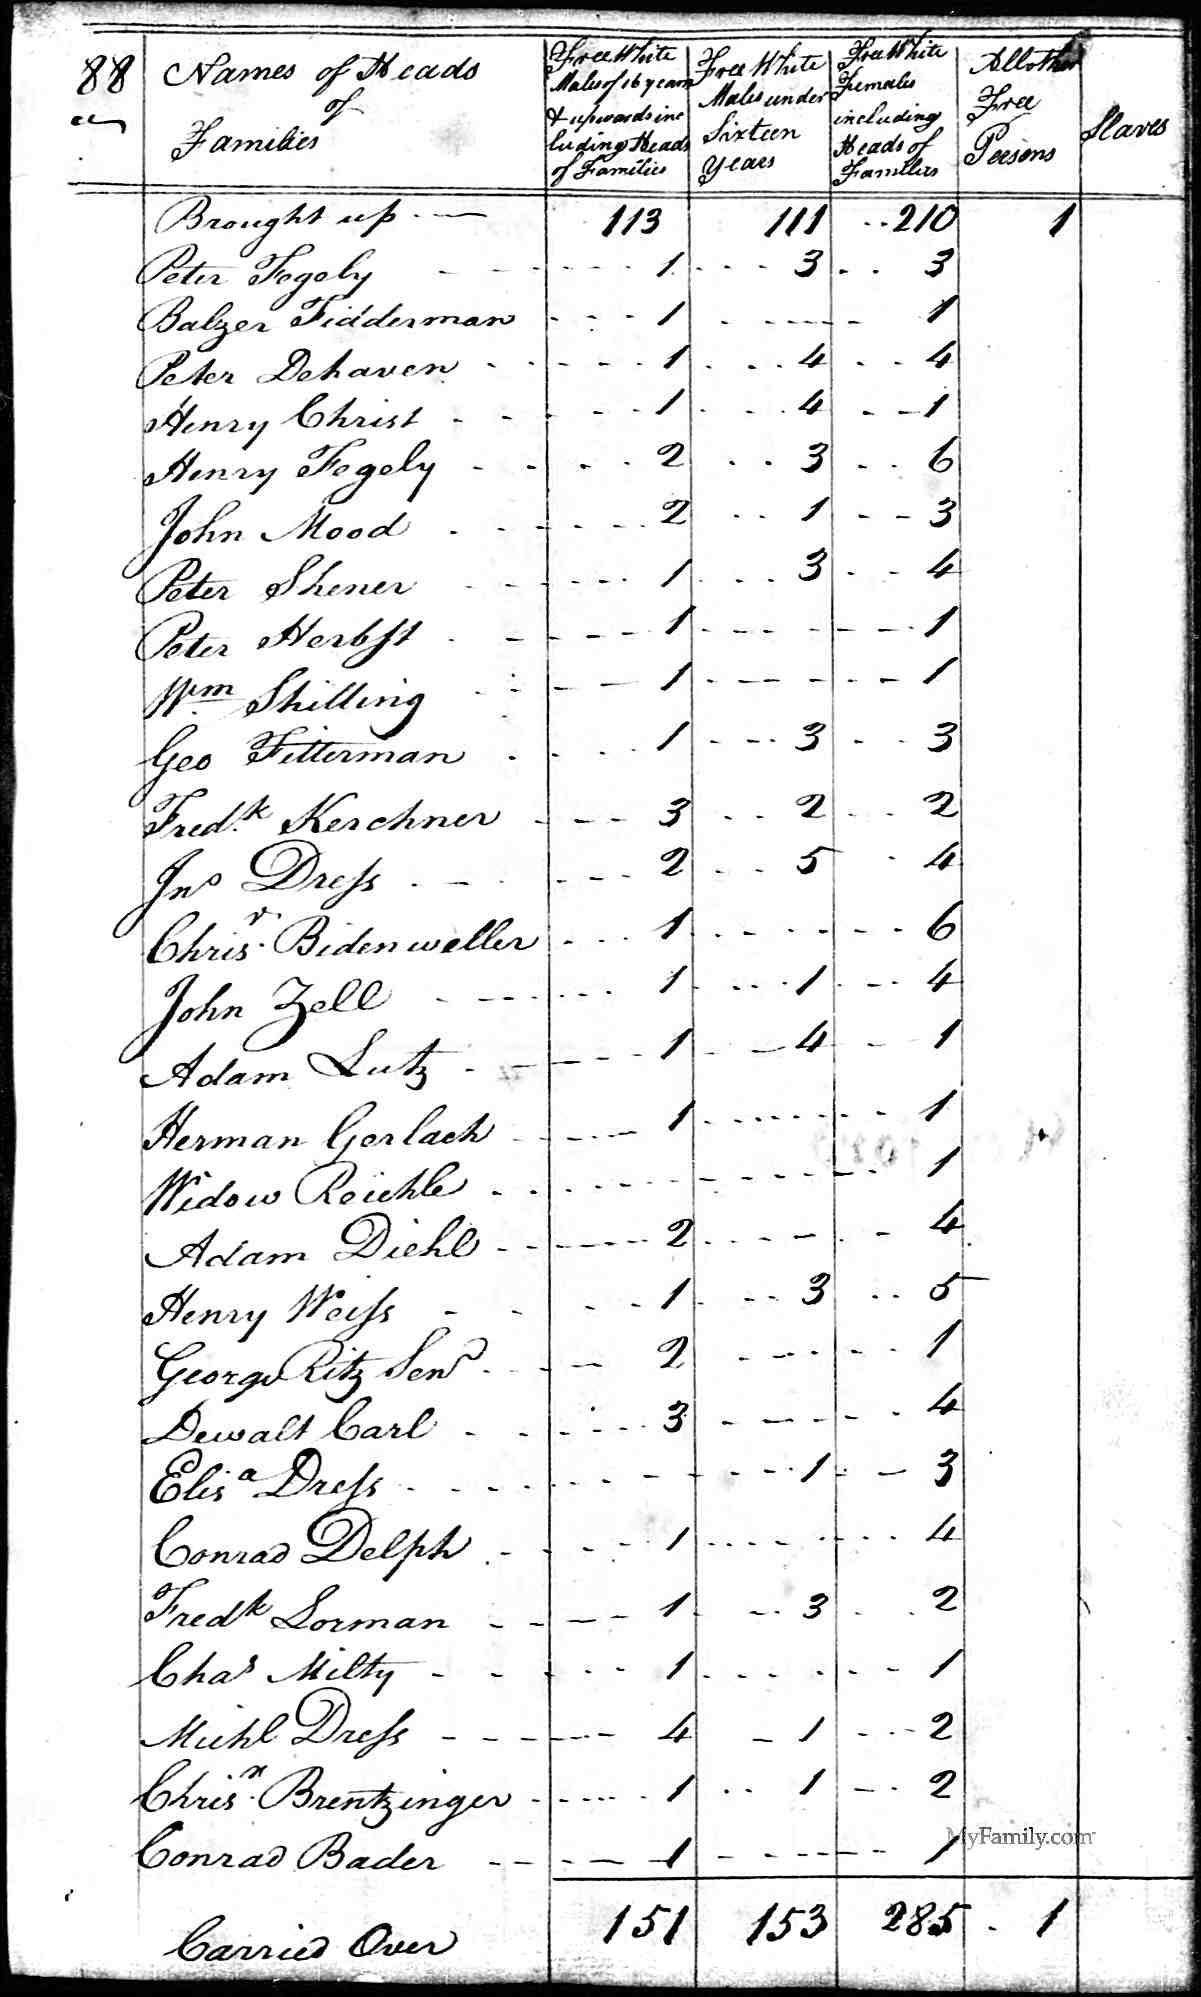 88 Names of Heads of Families | Free White Males of 16 years & upwards including Heads of Families | Free White Males under Sixteen Years | Free White Females including Heads of Families | All other Free Persons | Slaves
Brought up 113 111 210 1
Peter Fegely 1 3 3
Balzer Fidderman 1 1
Peter Dehaven 1 4 4
Henry Christ 1 4 1
Henry Fegely 2 3 6
John Mood 2 1 3
Peter Shener 1 3 4
Peter Herbst 1 1
Wm Shilling 1 1
Geo Fitterman 1 3 3
Fredk Kerchner 3 2 2
Jno Dress 2 5 4
Chrisr Bidenweller 1 6
John Zell 1 1 4
Adam Lutz 1 4 1
Herman Gerlach 1 1
Widow Reichle 1
Adam Diehl 2 4
Henry Weiss 1 3 5
George Ritz Senr 2 1
Dewalt Carl 3 4
Elisa Dress 1 3
Conrad Delph 1 4
Fredk Lorman 1 3 2
Chas Milty 1 1
Michl Dress 4 1 2
Chrisn Brentzinger 1 1 2
MyFamily.com
Conrad Bader 1 1
Carried Over 151 153 285 1